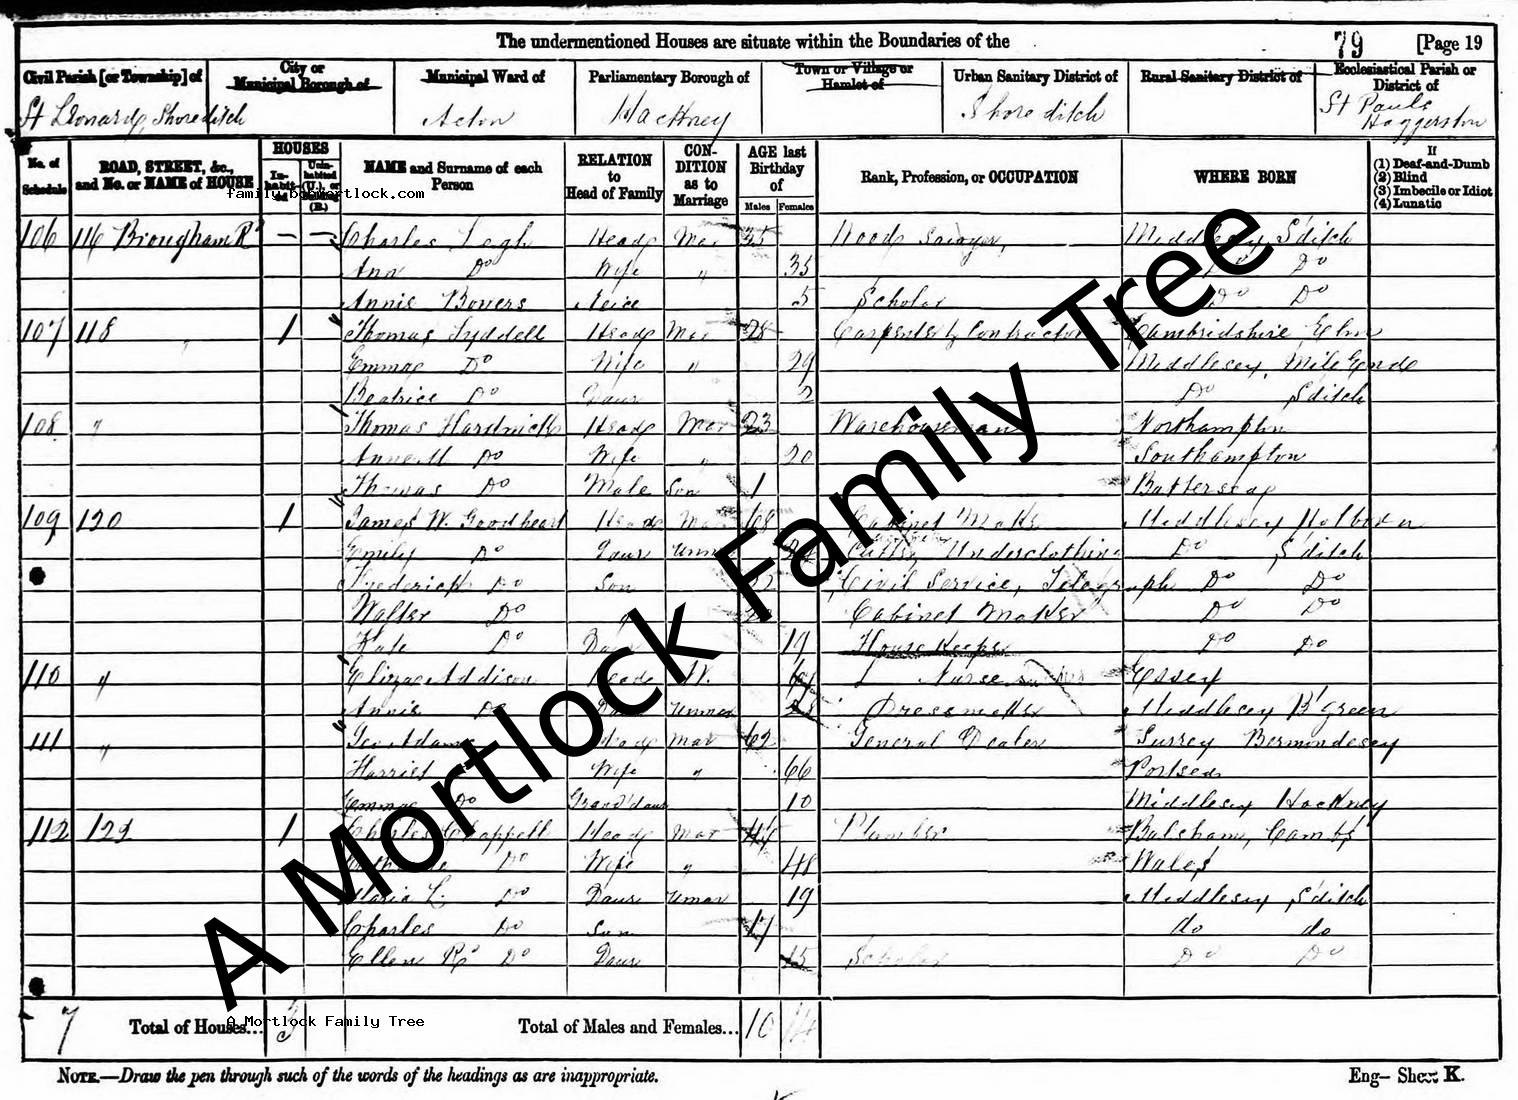 The undermentioned Houses are situate within the Boundaries of the 79 [Page 19
Civil Parish [or Township] of City or Municipal Borough of Municipal Ward of Parliamentary Borough of Town or Village or Hamlet of Urban Sanitary District of Rural Sanitary District of Ecclesiastical Parish or District of
St Leonard, Shoreditch Acton Hackney Shoreditch St Pauls Haggerston
No. of Schedule ROAD, STREET, &c., and No. or NAME of HOUSE HOUSES Inhabited Uninhabited (U.), or Building (B.) NAME and Surname of each Person RELATION to Head of Family CONDITION as to Marriage AGE last Birthday of Males Females Rank, Profession, or OCCUPATION WHERE BORN If (1) Deaf-and-Dumb (2) Blind (3) Imbecile or Idiot (4) Lunatic
family.bobmortlock.com
106 116 Brougham Rd — — Charles Legh Head Mar 35 Wood Sawyer, Middlesex, S'ditch
Ann Do Wife " 35 Do Do
Annie Bowers Neice 5 Scholar Do Do
107 118 " 1 Thomas Lyddell Head Mar 28 Carpenter & Contractor Cambridshire Elm
Emma Do Wife " 29 Middlesex, Mile End
Beatrice Do Daur 2 Do S'ditch
108 " Thomas Hardwick Head Mar 23 Warehouseman Northampton
Annie M Do Wife " 20 Southampton
Thomas Do Male Son 1 Battersea
109 120 1 James W. Goodheart Head Mar 68 Cabinet Maker Middlesex Holborn
Emily Do Daur Unmar Underclothing Do S'ditch
Frederick Do Son 22 Civil Service, Telegraph Do Do
Walter Do Cabinet Maker Do Do
Kate Do Daur 19 House Keeper Do Do
110 " Eliza Addison Head W. Nurse Essex
Annie Do Daur Unmar Dressmaker Middlesex B'green
111 " Geo Adams Head Mar 62 General Dealer Surrey Bermondesey
Harriet Wife " 66 Portsea
Emma Do Grand'daur 10 Middlesex Hackney
112 122 1 Charles Chappell Head Mar Plumber Balsham, Cambs
Catherine Do Wife " 48 Wales
Maria L. Do Daur Unmar 19 Middlesex S'ditch
Charles Do Son 17 do do
Ellen R. Do Daur 15 Scholar Do Do
7 Total of Houses... 3 Total of Males and Females... 10 14
A Mortlock Family Tree
NOTE.—Draw the pen through such of the words of the headings as are inappropriate. Eng— Sheet K.
A Mortlock Family Tree